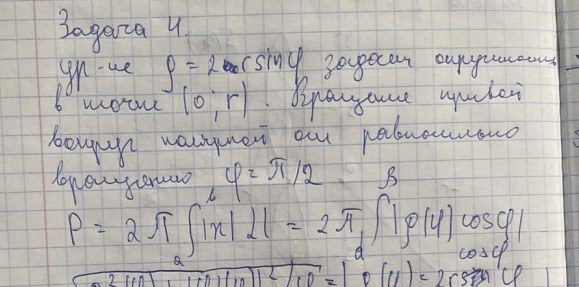 Задача 4.
ур-ие ρ = 2r sin φ задаёт окружность
в точке (0; r). Вращение кривой
вокруг полярной оси равносильно
вращению φ = π/2
P = 2π ∫ₐᵇ |x| dl = 2π ∫ |ρ(φ) cos φ|
cos φ
= | ρ(φ) = 2r sin φ